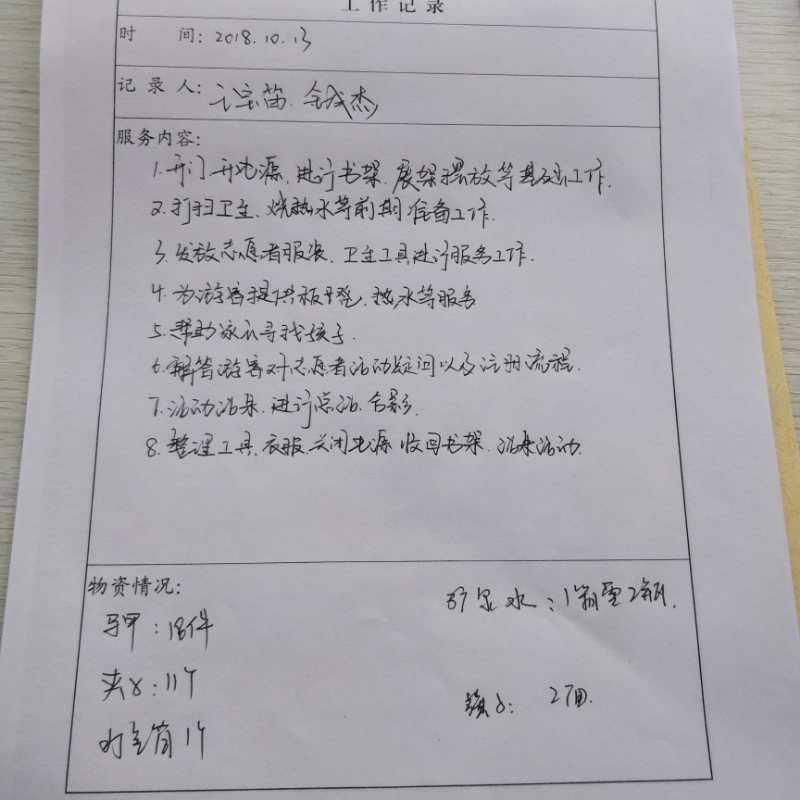 工作记录
时 间: 2018.10.13
记 录 人:
服务内容:
1.开门开电源、进行书架、展架摆放等基础工作.
2.打扫卫生、烧热水等前期准备工作.
3.发放志愿者服装、卫生工具进行服务工作.
4.为游客提供板凳、热水等服务
5.帮助家长寻找孩子.
6.解答游客对志愿者活动疑问以及注册流程.
7.活动结束、进行总结、合影.
8.整理工具、衣服、关闭电源 收回书架、结束活动.
物资情况:
矿泉水:1箱零2瓶.
马甲:18件
夹子:11个
旗子: 2面.
1个